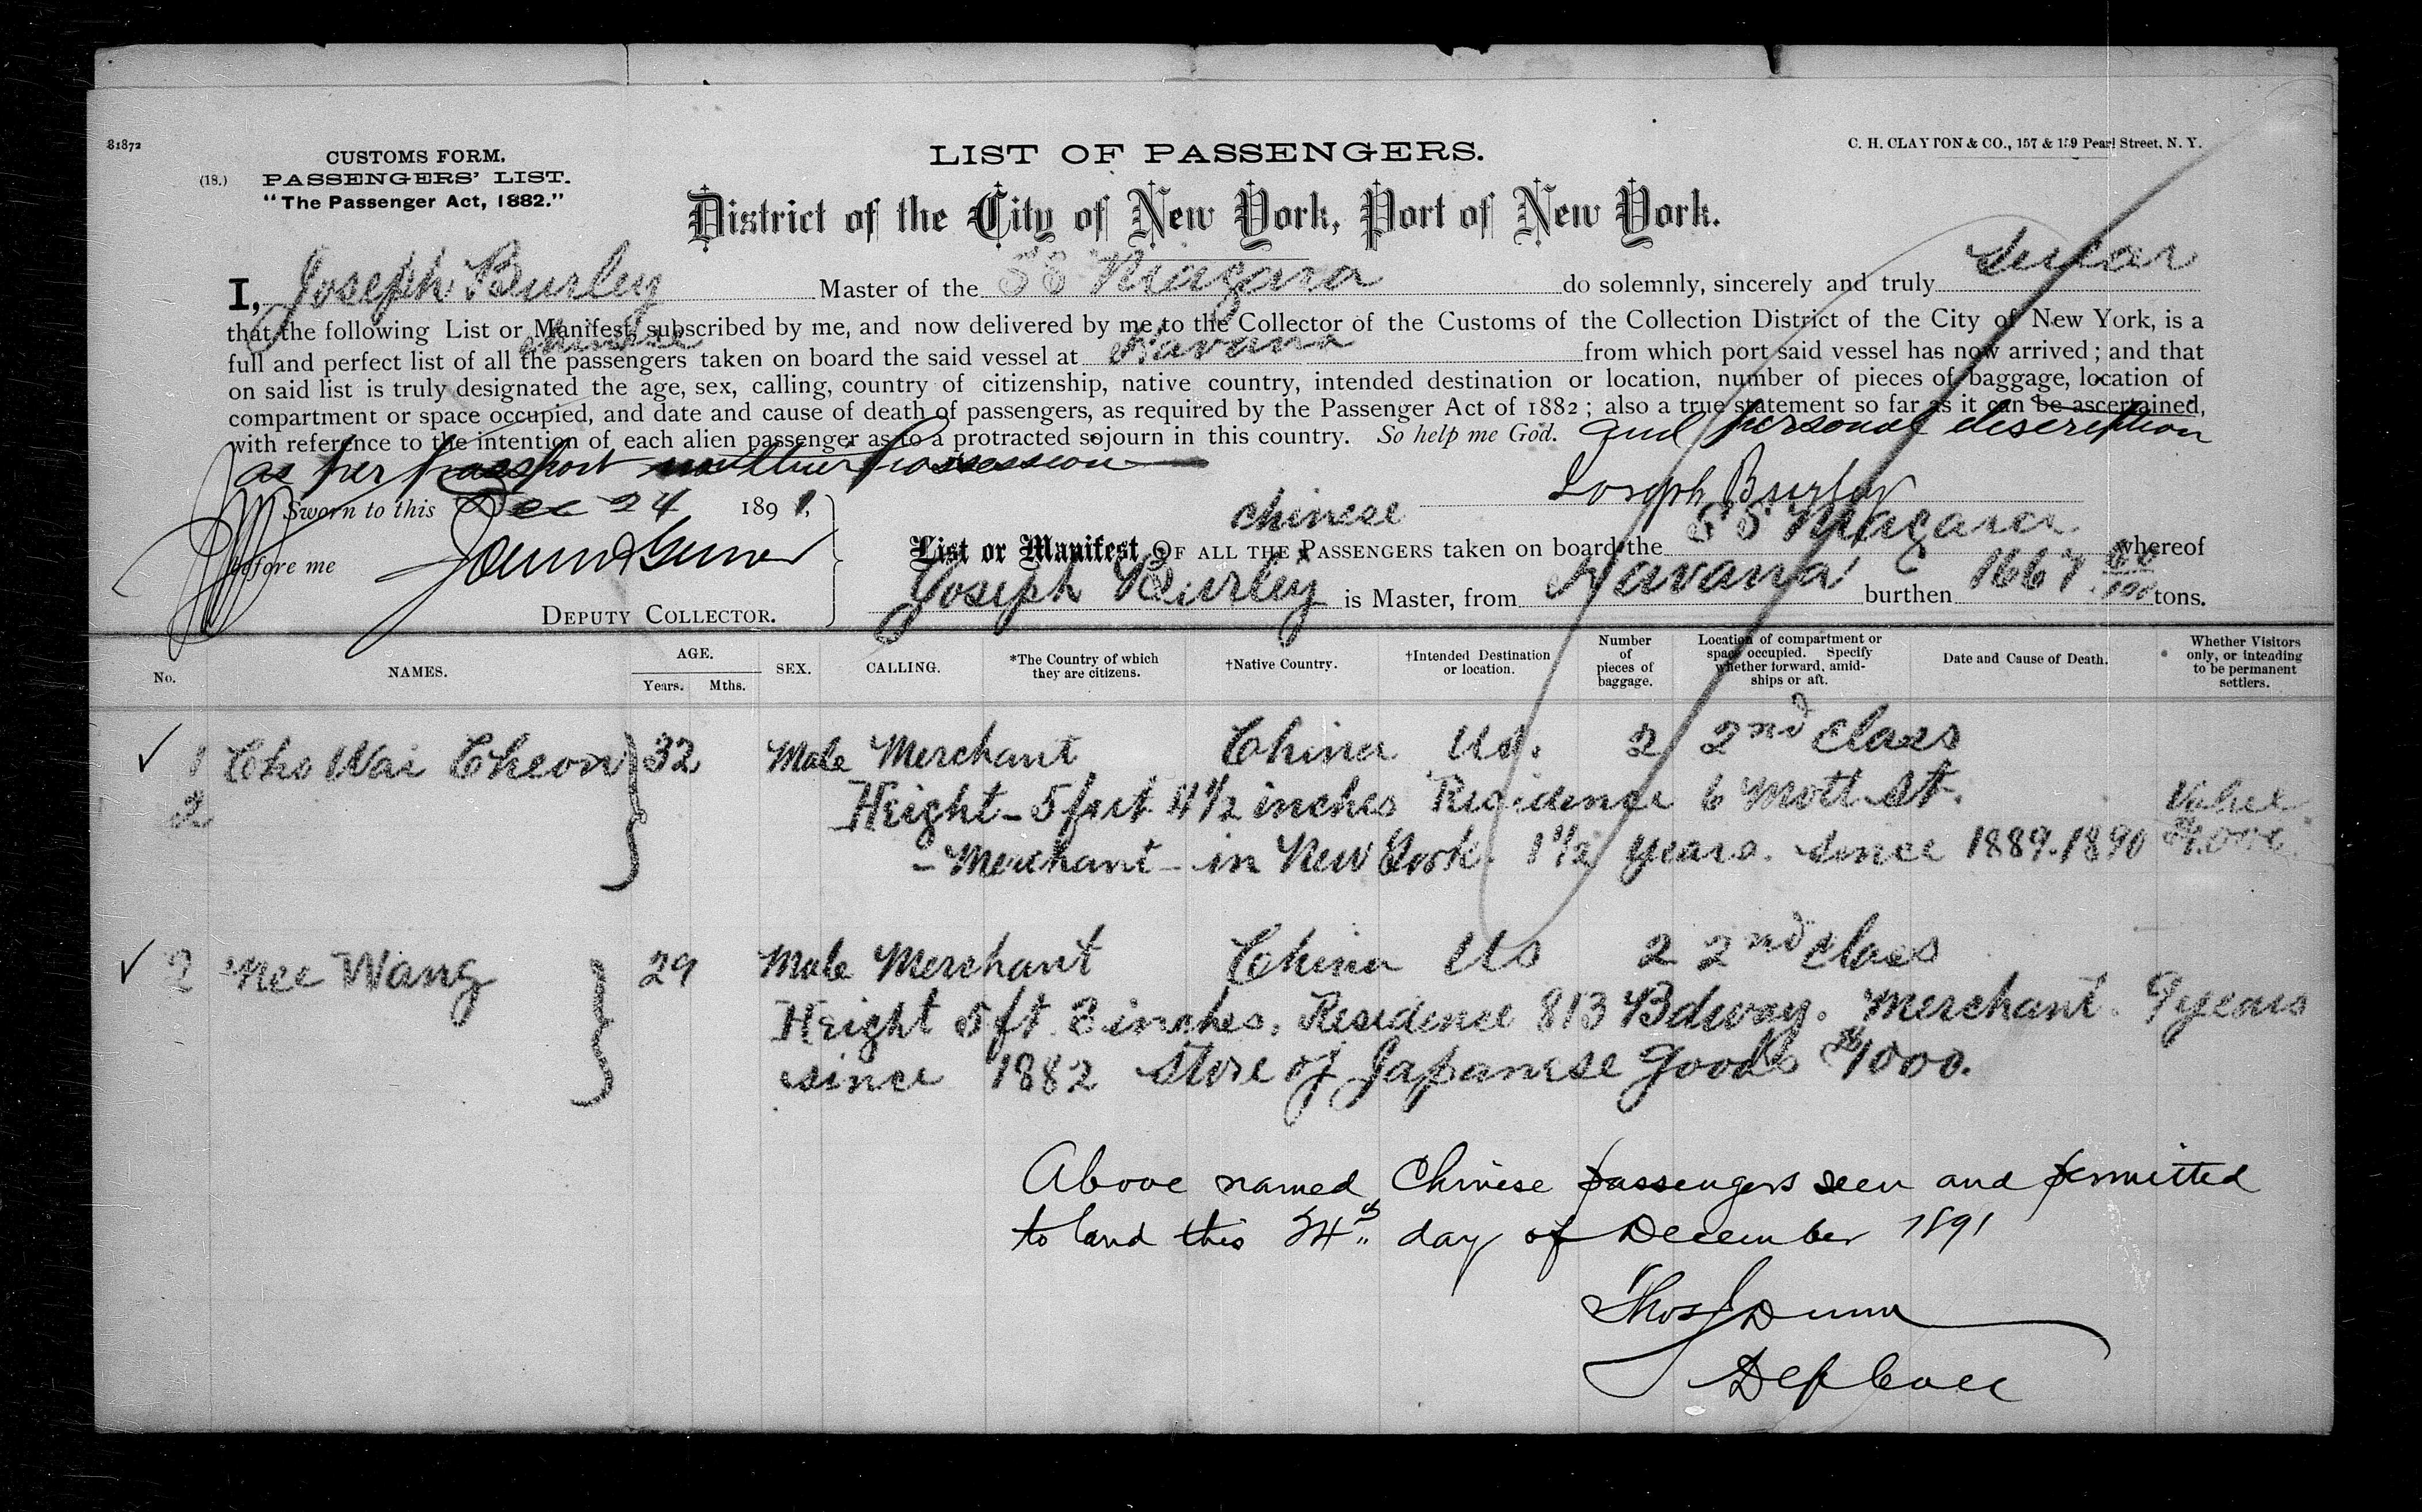 81872
CUSTOMS FORM.
(18.) PASSENGERS' LIST.
"The Passenger Act, 1882."
LIST OF PASSENGERS.
C. H. CLAYTON & CO., 157 & 159 Pearl Street, N. Y.
District of the City of New York, Port of New York.
I, Joseph Burley Master of the SS Niagara do solemnly, sincerely and truly swear
that the following List or Manifest, subscribed by me, and now delivered by me to the Collector of the Customs of the Collection District of the City of New York, is a
chinese
full and perfect list of all the passengers taken on board the said vessel at Havana from which port said vessel has now arrived; and that
on said list is truly designated the age, sex, calling, country of citizenship, native country, intended destination or location, number of pieces of baggage, location of
compartment or space occupied, and date and cause of death of passengers, as required by the Passenger Act of 1882; also a true statement so far as it can be ascertained,
with reference to the intention of each alien passenger as to a protracted sojourn in this country. So help me God. and personal description
as per passport possession
Joseph Burley
Sworn to this Dec 24 1891,
before me
DEPUTY COLLECTOR.
chinese
List or Manifest OF ALL THE PASSENGERS taken on board the SS Niagara whereof
Joseph Burley is Master, from Havana burthen 1667 60/100 tons.
No. NAMES. AGE. Years. Mths. SEX. CALLING. *The Country of which they are citizens. †Native Country. †Intended Destination or location. Number of pieces of baggage. Location of compartment or space occupied. Specify whether forward, amidships or aft. Date and Cause of Death. Whether Visitors only, or intending to be permanent settlers.
✓ 1 Cho Wai Cheon 32 Male Merchant China US. 2 2nd class
2 Height - 5 feet 4 1/2 inches Residence 6 Mott St. Value
- Merchant - in New York. 1 1/2 years. since 1889-1890
✓ 2 Mee Wang 29 Male Merchant China US 2 2nd class
Height 5 ft 3 inches, Residence 813 Bdway. Merchant. 9 years
since 1882 store of Japanese Goods $1000.
Above named Chinese passengers seen and permitted
to land this 24th day of December 1891
Thos J Dunn
Dep Coll